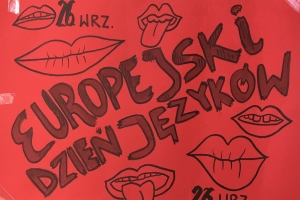 26 WRZ.
EUROPEJSKI
DZIEŃ JĘZYKÓW
26 WRZ.